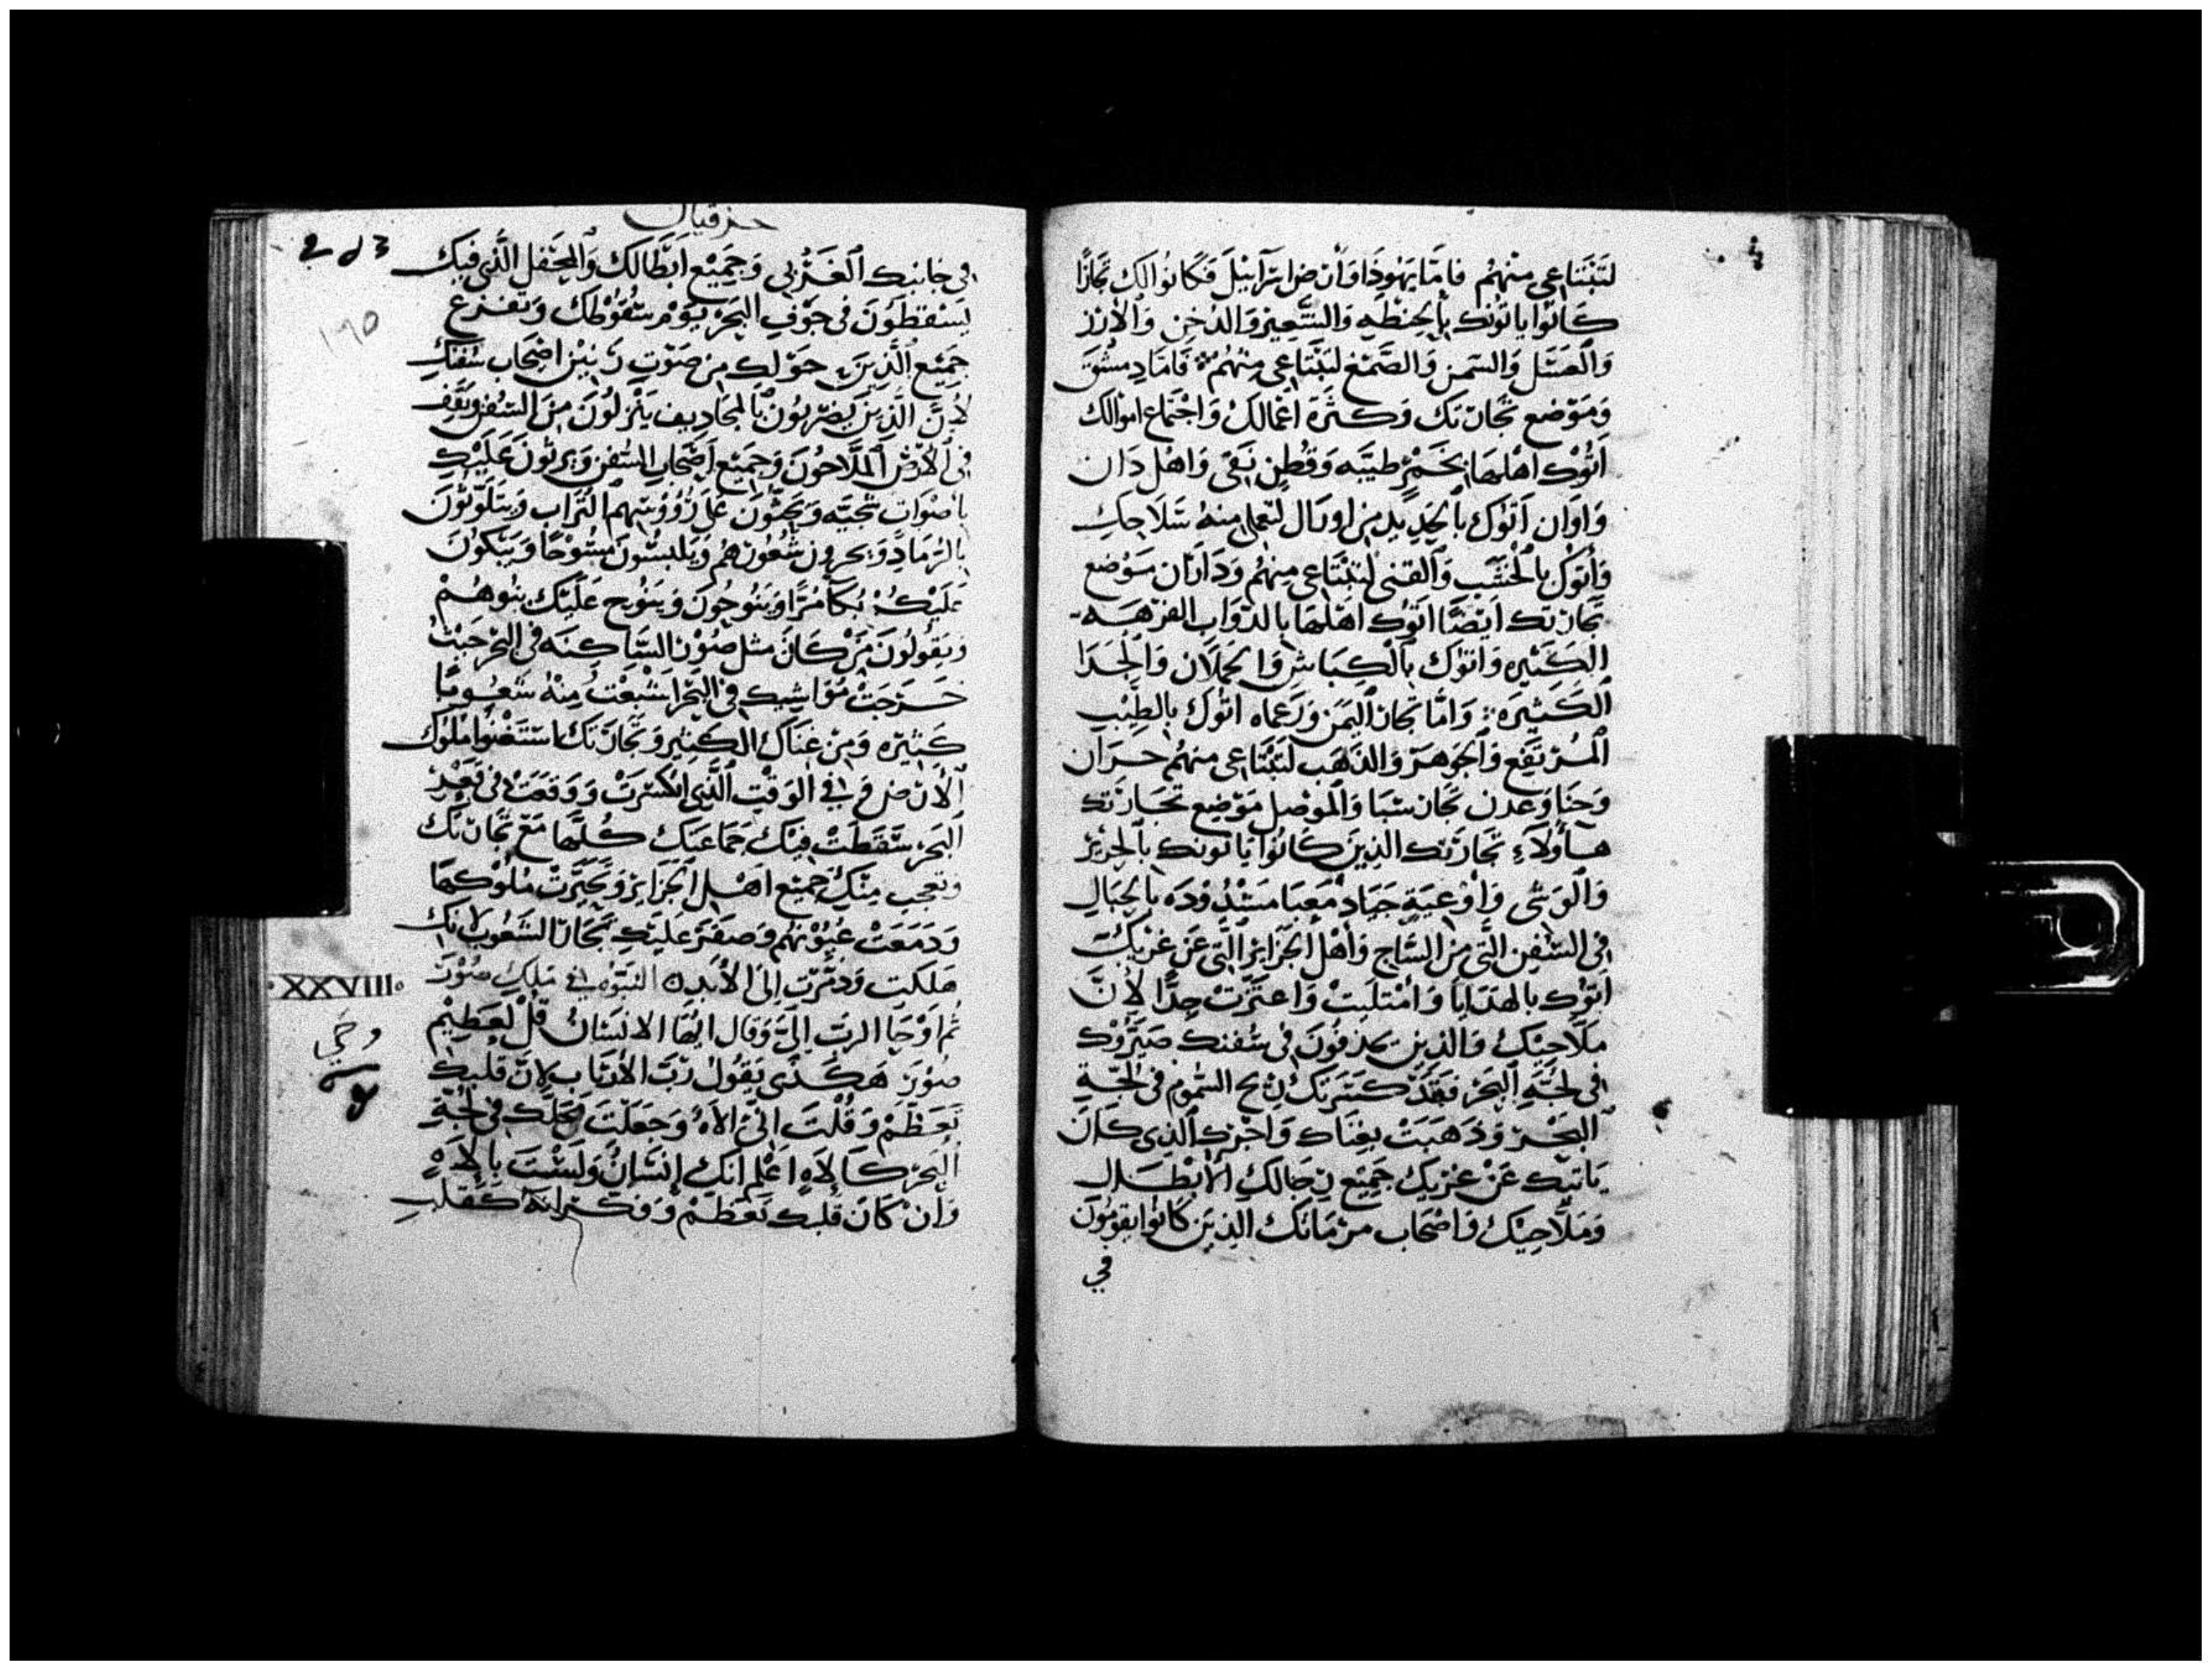 لتبتاعي منهم فاما يهوذا وارض اسرآييل فكانوا لك تجارًا
كانوا ياتونك بالحنطه والشعير والدخن والارز
والعسل والسمن والصمغ لتبتاعي منهم فاما دمشق
وموضع تجارتك وكثرة اعمالك واجتماع اموالك
اتوك اهلها بخمرٍ طيبه وقطن نقي واهل دان
واوان اتوك بالحديد من اوزال لتعملي منه سلاحك
واتوك بالخشب والقنى لتبتاعي منهم ودادان موضع
تجارتك ايضًا اتوك اهلها بالدواب الفرهه
الكثيره واتوك بالكباش والحملان والجدا
الكثيره واما تجار اليمن ورعماه اتوك بالطيب
المرتفع والجوهر والذهب لتبتاعي منهم حران
وحنا وعدن تجار سبا والموصل موضع تجارتك
هاولاء تجارتك الذين كانوا ياتونك بالحرير
والوشى واوعية جياد معبا مشدوده بالحبال
في السفن التي من الساج واهل الجزاير التي عن غربك
اتوك بالهدايا وامتليت واعتززت جدًا لان
ملاحيك والذين يجدفون في سفنك صيروك
في لجة البحر فقد كسرتك ريح السموم في لجة
البحر وذهبت بغناك واخزك الذي كان
ياتيك عن غربك جميع رجالك الابطال
وملاحيك واصحاب الذين كانوا يقومون
في
حزقيال
في جانبك الغربي وجميع ابطالك والمحفل الذي فيك
يسقطون في جوف البحر يوم سقوطك وتفزع
جميع الذين حولك من صوت رنين اصحاب سفنك
لان الذين يضربون بالمجاديف ينزلون من السفن ويقف
في الارض الملاحون وجميع اصحاب السفن ويرثون عليك
باصوات شجيه ويحثون على رؤوسهم التراب ويتلوثون
بالرماد ويجزون شعورهم ويلبسون مسوحًا ويبكون
عليك بكاً مرًا وينوحون وينوح عليك بنوهم
ويقولون من كان مثل صور الساكنه في البحر حيث
خرجت مواشيك في البحر اشبعت منه شعوبًا
كثيره ومن غناك الكثير وتجارتك استغنوا ملوك
الارض في الوقت الذي انكسرت ووقعت في قعر
البحر سقطت فيك جماعتك كلها مع تجارتك
وتعجب منك جميع اهل الجزاير وتحيرت ملوكها
ودمعت عيونهم وصفر عليك تجار الشعوب لانك
هلكت ودمرت الى الابد النبوه في ملك صور
·XXVIII·
ثم اوحا الرب اليّ وقال ايها الانسان قل لعظيم
صور هكذى يقول رب الارباب لان قلبك
تعظم وقلت اني الاه وجعلت محلك في لجة
البحر كالاه اعلم انك انسان ولست بالاهٍ
وان كان قلبك تعظم وفكر انه كقلب